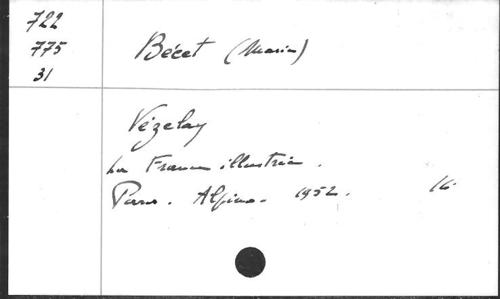 722
775
31
Bécet (Marie)
Vézelay
La France illustrée.
Paris. Alpina. 1952. 16